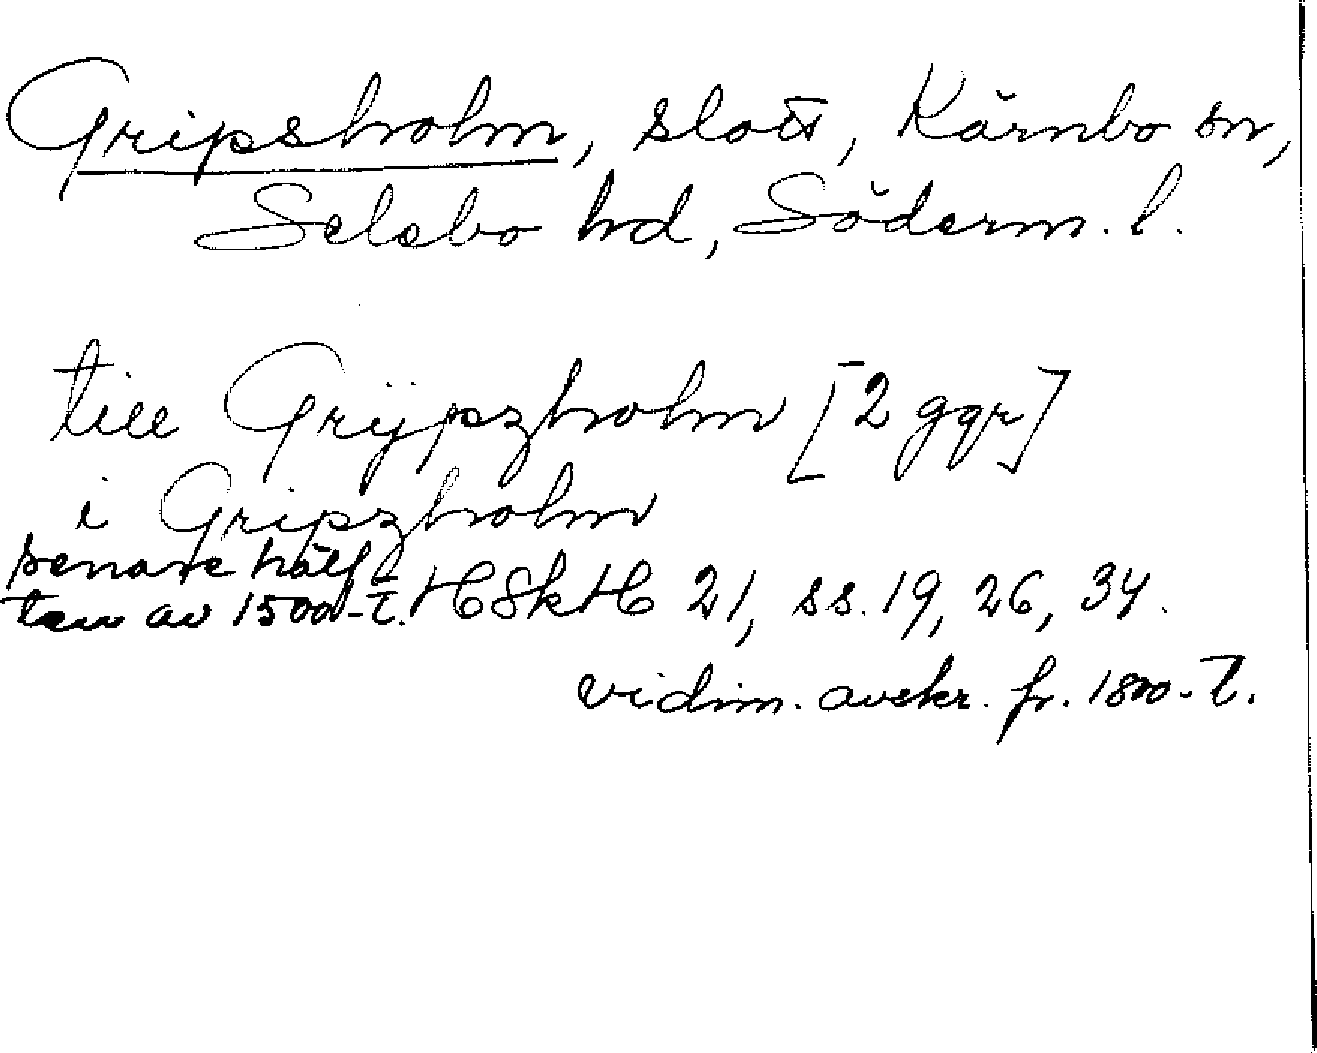 Gripsholm, slott, Kärnbo sn,
Selebo hd, Söderm. l.
till Grÿpszholm [2 ggr]
i Gripszholm
senare hälf
ten av 1500-t. HSkH 21, ss. 19, 26, 34.
vidim. avskr. fr. 1800-t.